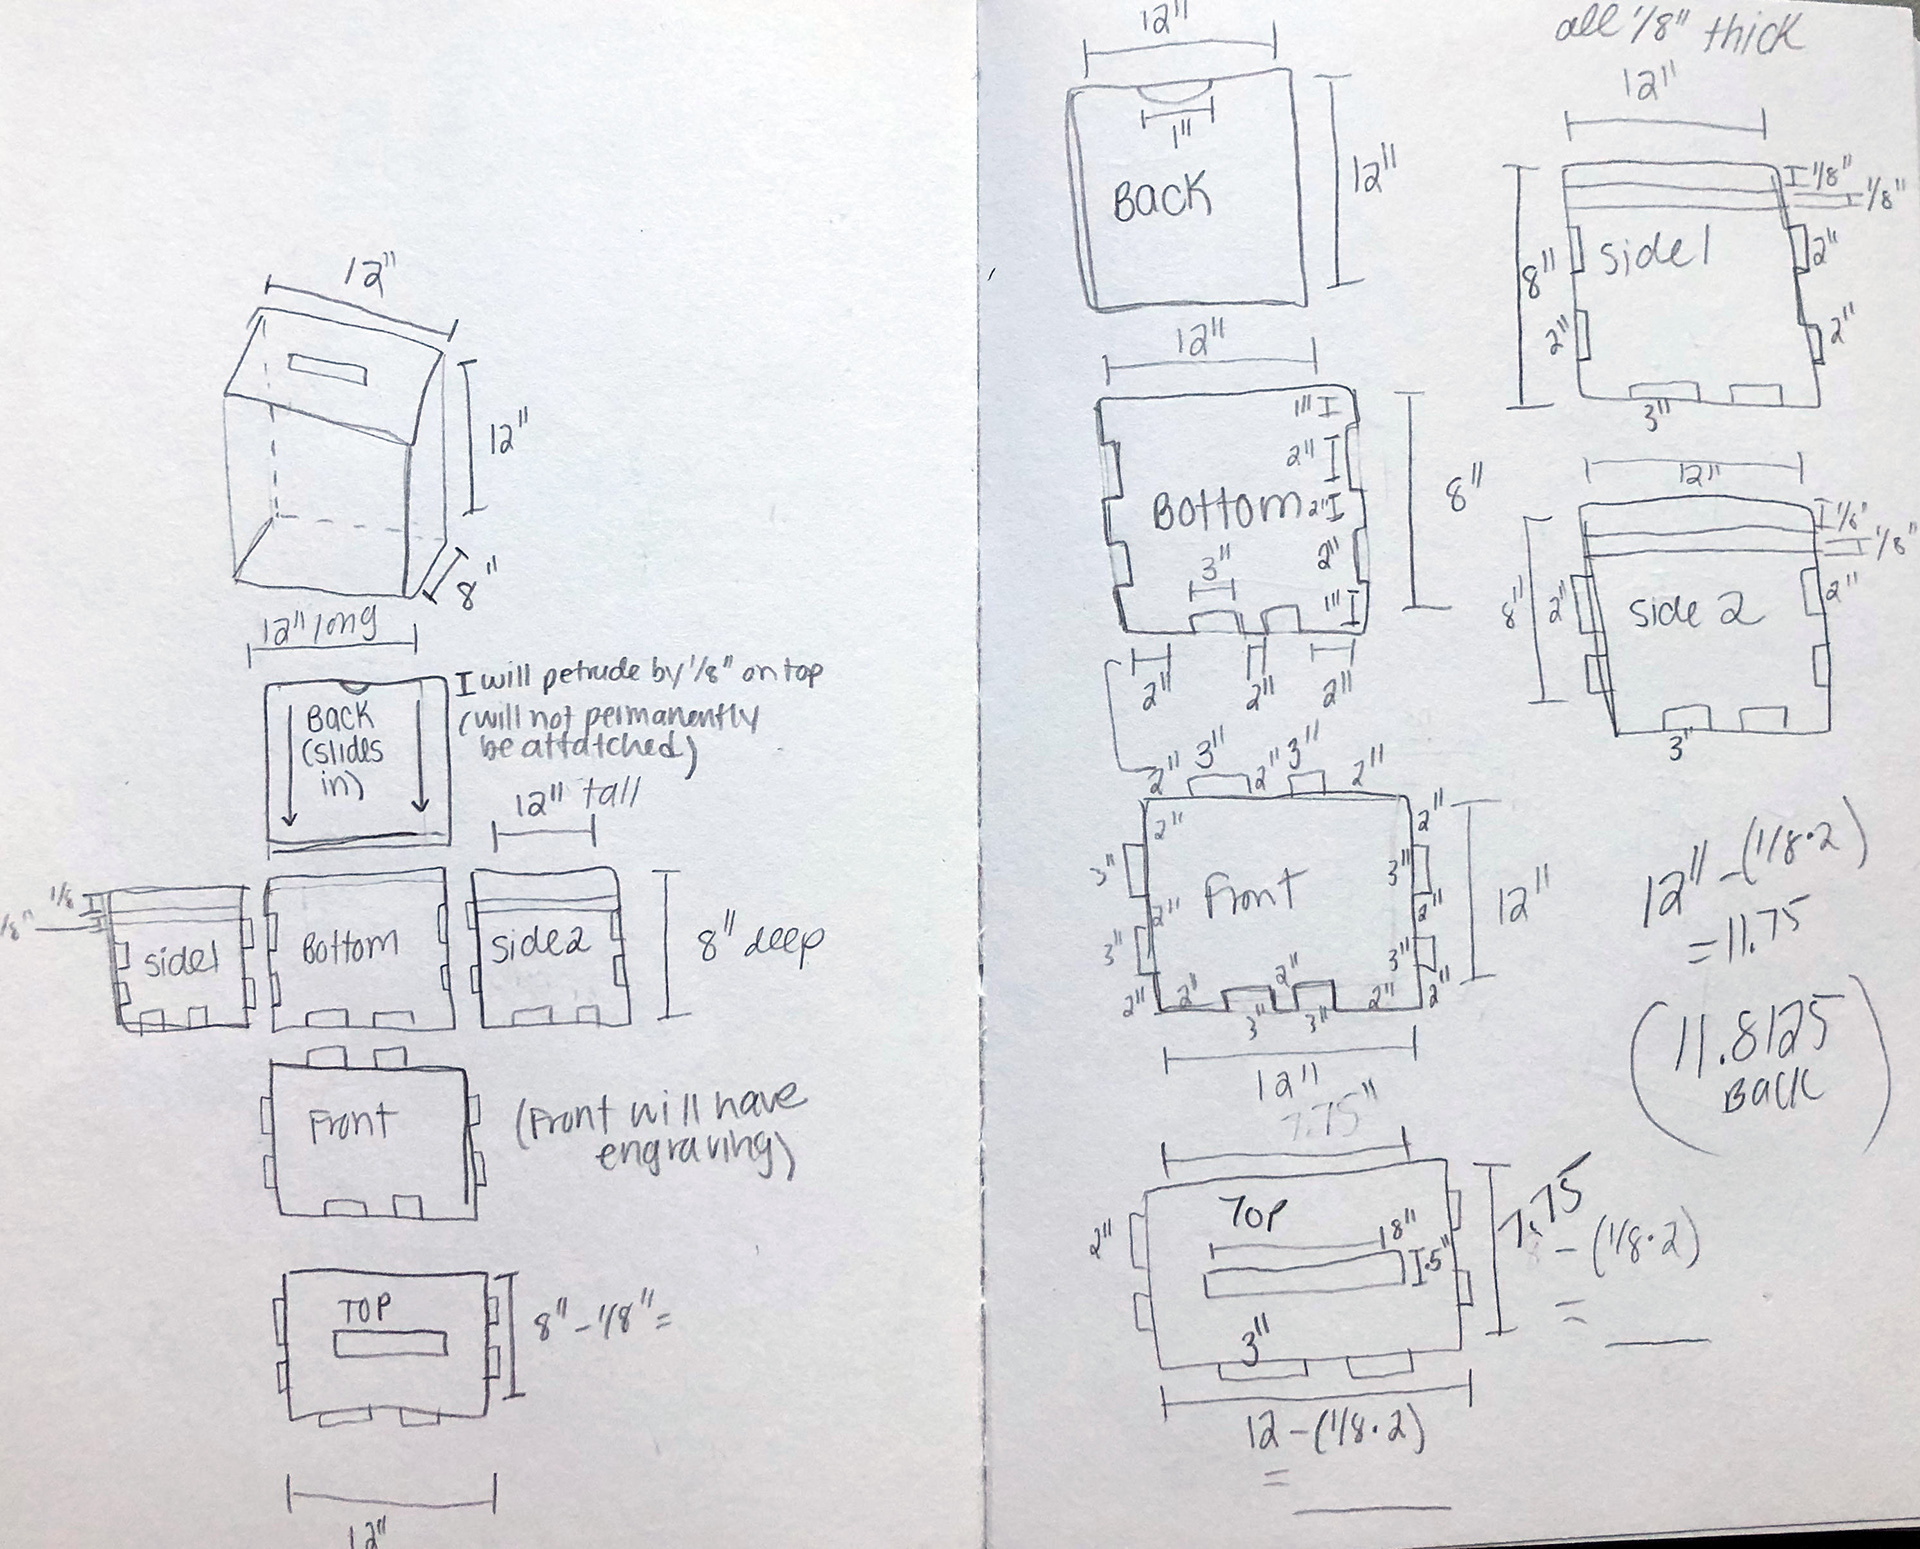 12"
12"
8"
12" long
I will petrude by 1/8" on top
(will not permanently
be attatched)
BACK
(slides
in)
12" tall
1/8
1/8"
side1
Bottom
side2
8" deep
Front
(Front will have
engraving)
TOP
8" - 1/8" =
12"
all 1/8" thick
12"
1"
BACK
12"
12"
1/8"
1/8"
8"
side1
2"
2"
2"
3"
12"
1"
2"
Bottom
2"
8"
3"
2"
1"
2"
2"
2"
12"
1/8"
1/8"
8"
2"
side 2
2"
3"
2"
3"
2"
3"
2"
2"
2"
3"
Front
3"
12"
2"
2"
3"
3"
2"
2"
2"
2"
2"
3"
3"
12"
7.75"
12" - (1/8·2)
= 11.75
(11.8125
BACK)
TOP
2"
8"
.5"
3"
7.75
- (1/8·2)
=
12 - (1/8·2)
=